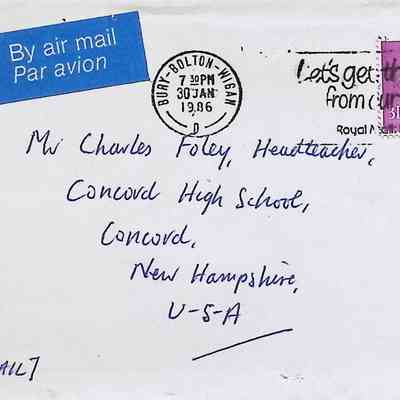 By air mail
Par avion
BURY-BOLTON-WIGAN
7 30PM
30 JAN
1986
D
Let's get th
from our
Royal Mail
31
Mr Charles Foley, Headteacher,
Concord High School,
Concord,
New Hampshire,
U-S-A
AIL]